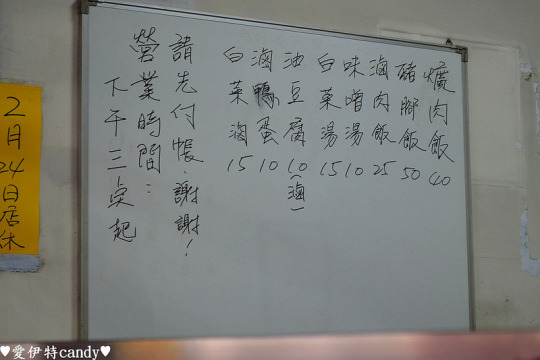 爌肉飯 40
豬腳飯 50
滷肉飯 25
味噌湯 10
白菜湯 15
油豆腐 10(滷)
滷鴨蛋 10
白菜滷 15
請先付帳、謝謝!
營業時間:
下午三點起
2月24日店休
♥愛伊特candy♥